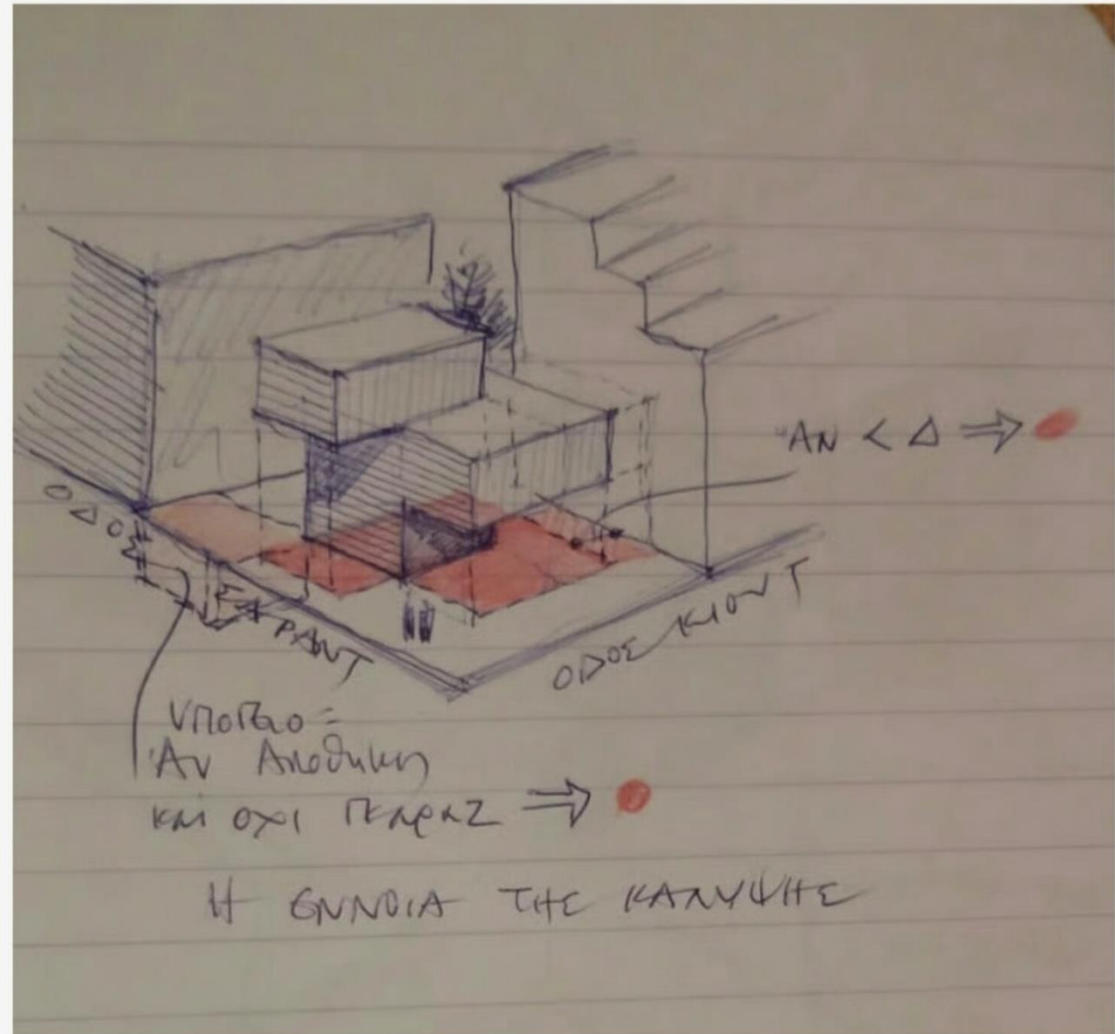 ΑΝ < Δ ⇒
ΟΔΟΣ
ΣΑΡΑΝΤ
ΟΔΟΣ ΚΙΟΝΤ
ΥΠΟΓΕΙΟ =
Αν Αποθήκη
και οχι ΓΚαραΖ ⇒
Η ΕΝΝΟΙΑ ΤΗΣ ΚΑΛΥΨΗΣ